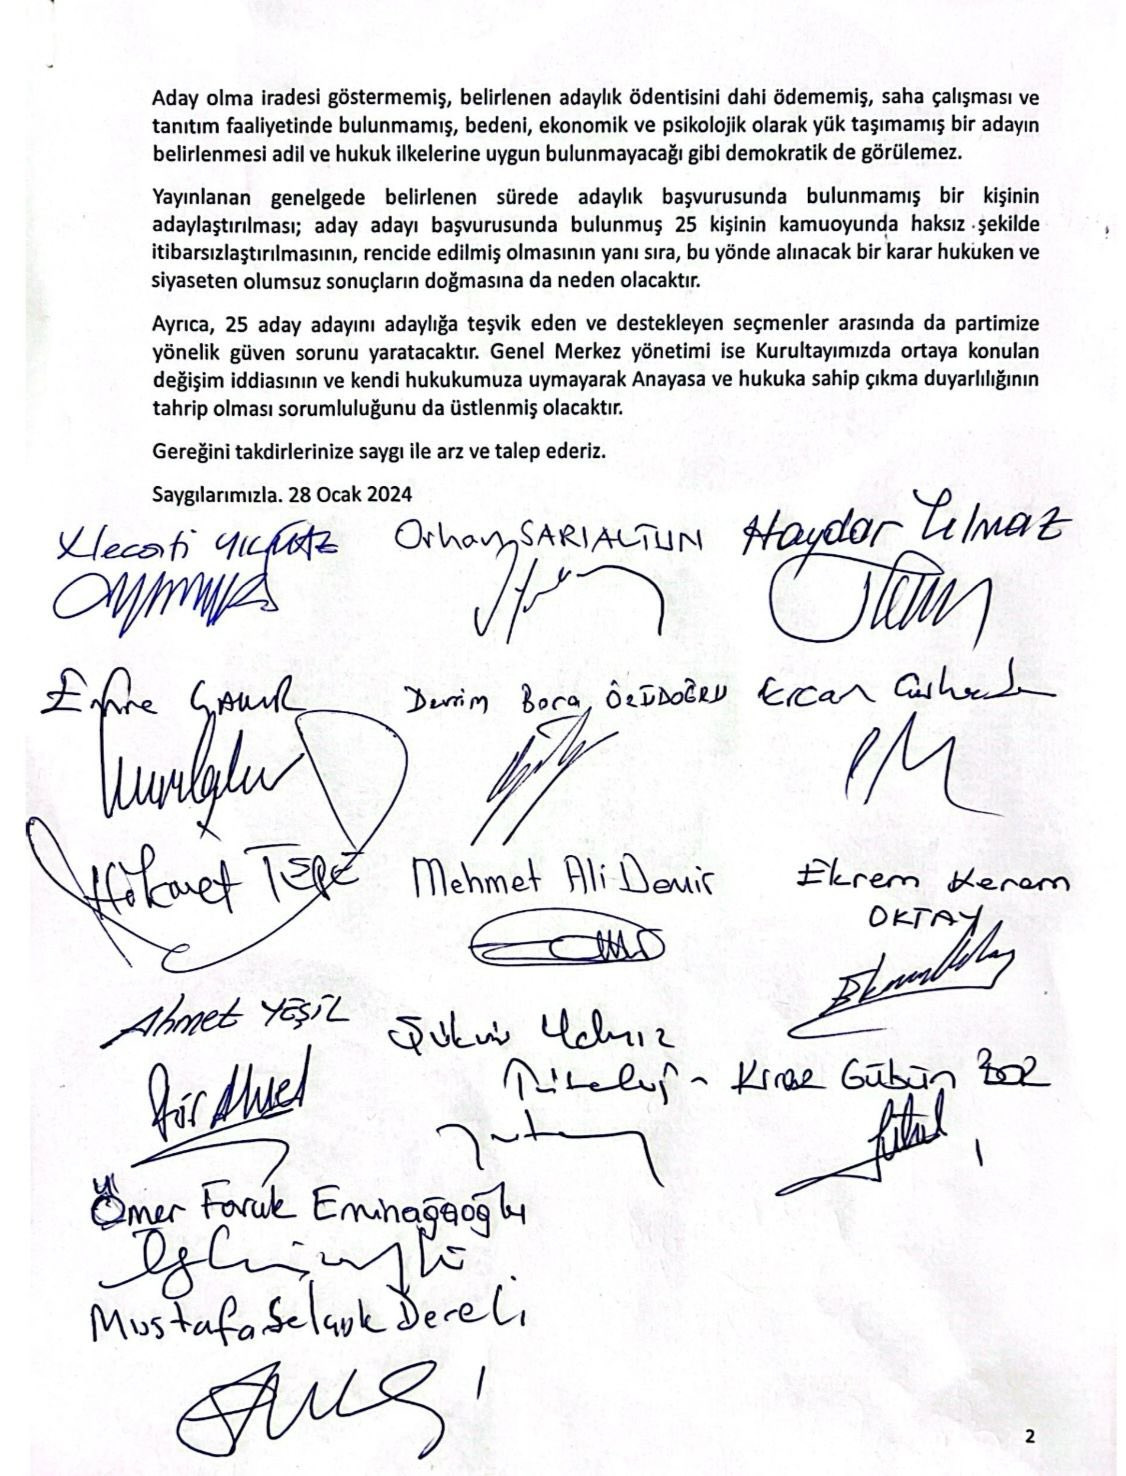 Aday olma iradesi göstermemiş, belirlenen adaylık ödentisini dahi ödememiş, saha çalışması ve
tanıtım faaliyetinde bulunmamış, bedeni, ekonomik ve psikolojik olarak yük taşımamış bir adayın
belirlenmesi adil ve hukuk ilkelerine uygun bulunmayacağı gibi demokratik de görülemez.
Yayınlanan genelgede belirlenen sürede adaylık başvurusunda bulunmamış bir kişinin
adaylaştırılması; aday adayı başvurusunda bulunmuş 25 kişinin kamuoyunda haksız şekilde
itibarsızlaştırılmasının, rencide edilmiş olmasının yanı sıra, bu yönde alınacak bir karar hukuken ve
siyaseten olumsuz sonuçların doğmasına da neden olacaktır.
Ayrıca, 25 aday adayını adaylığa teşvik eden ve destekleyen seçmenler arasında da partimize
yönelik güven sorunu yaratacaktır. Genel Merkez yönetimi ise Kurultayımızda ortaya konulan
değişim iddiasının ve kendi hukukumuza uymayarak Anayasa ve hukuka sahip çıkma duyarlılığının
tahrip olması sorumluluğunu da üstlenmiş olacaktır.
Gereğini takdirlerinize saygı ile arz ve talep ederiz.
Saygılarımızla. 28 Ocak 2024
Orhan SARIALTUN Haydar Yılmaz
Emre Devrim Bora ÖZÜDOĞRU Ercan
Hikmet TEPE Mehmet Ali Demir Ekrem Kerem
OKTAY
Ahmet YEŞİL Şükrü
Ömer Faruk Eminağaoğlu
Mustafa Selçuk Dereli
2